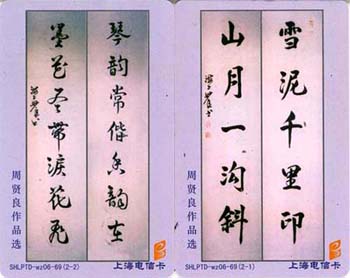 琴韵常偕韵在
墨花带花飛
周贤良作品选
SHLPTD-wz06-69(2-2)
上海电信卡
雪泥千里印
山月一沟斜
周贤良作品选
SHLPTD-wz06-69(2-1)
上海电信卡